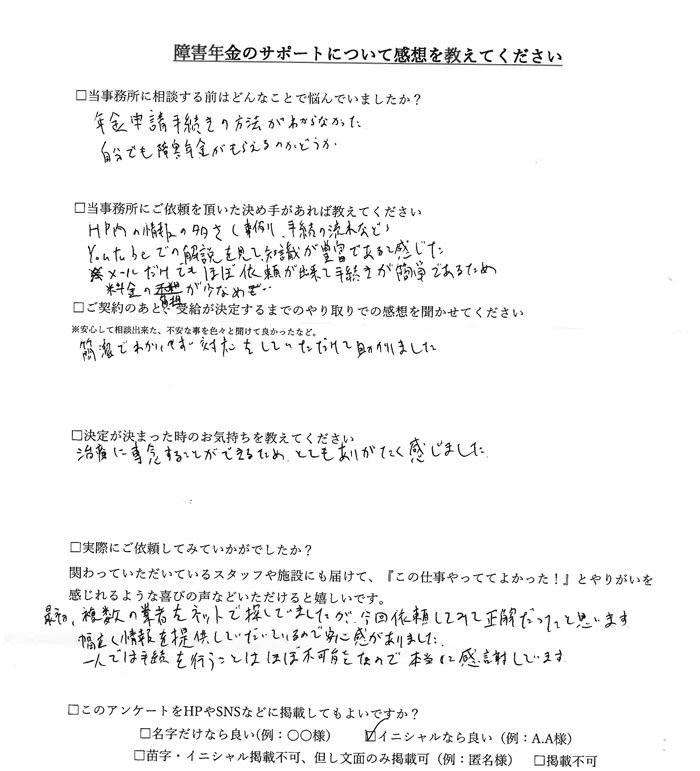 障害年金のサポートについて感想を教えてください
□当事務所に相談する前はどんなことで悩んでいましたか？
年金申請手続きの方法がわからなかった
自分でも障害年金がもらえるのかどうか
□当事務所にご依頼を頂いた決め手があれば教えてください
HP内の情報の多さ（事例、手続の流れなど）
Youtubeでの解説を見て知識が豊富であると感じた
※メールだけでもほぼ依頼が出来て手続きが簡単であるため
料金の負担が少なめで…
□ご契約のあと、受給が決定するまでのやり取りでの感想を聞かせてください
※安心して相談出来た、不安な事を色々と聞けて良かったなど。
簡潔でわかりやすい対応をしていただけて助かりました
□決定が決まった時のお気持ちを教えてください
治療に専念することができるため、とてもありがたく感じました。
□実際にご依頼してみていかがでしたか？
関わっていただいているスタッフや施設にも届けて、『この仕事やっててよかった！』とやりがいを
感じれるような喜びの声などいただけると嬉しいです。
最初、複数の業者をネットで探していましたが、今回依頼してみて正解だったと思います
幅広く情報を提供していただいているので安心感がありました。
一人では手続を行うことはほぼ不可能なので本当に感謝しています
□このアンケートをHPやSNSなどに掲載してもよいですか？
□名字だけなら良い(例：〇〇様） ☑イニシャルなら良い（例：A.A様）
□苗字・イニシャル掲載不可、但し文面のみ掲載可（例：匿名様） □掲載不可